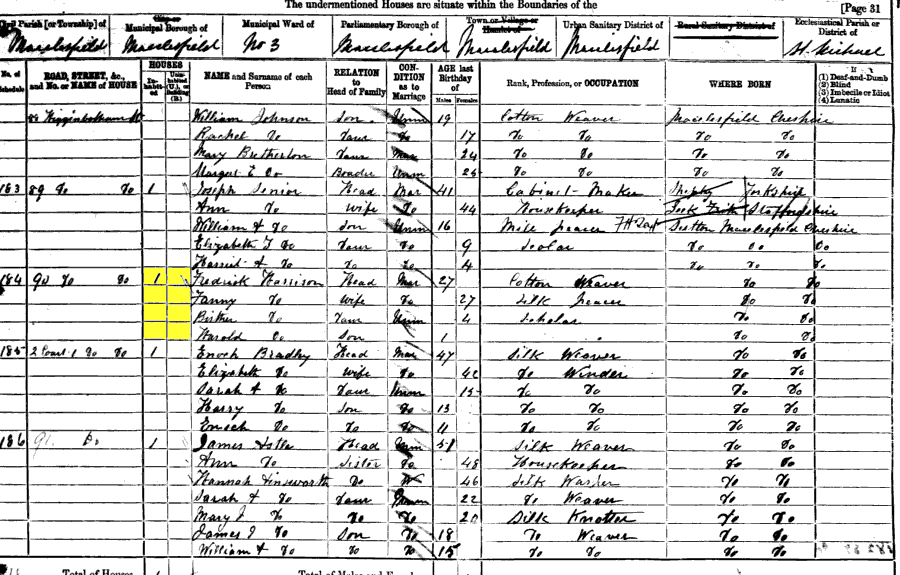 The undermentioned Houses are situate within the Boundaries of the
[Page 31
Parish [or Township] of Macclesfield
City or Municipal Borough of Macclesfield
Municipal Ward of No 3
Parliamentary Borough of Macclesfield
Town or Village or Hamlet of Macclesfield
Urban Sanitary District of Macclesfield
Rural Sanitary District of
Ecclesiastical Parish or District of St. Michael
No. of Schedule ROAD, STREET, &c., and No. or NAME of HOUSE HOUSES Inhabited Uninhabited (U.), or Building (B.) NAME and Surname of each Person RELATION to Head of Family CONDITION as to Marriage AGE last Birthday of Males Females Rank, Profession, or OCCUPATION WHERE BORN If (1) Deaf-and-Dumb (2) Blind (3) Imbecile or Idiot (4) Lunatic
William Johnson Son Unm 19 Cotton Weaver Macclesfield Cheshire
Rachel Do Daur Do 17 Do Do Do Do
Mary Do Daur Mar 24 Do Do Do Do
Margret E Do Unm Do Do Do Do
183 89 Do Do 1 Joseph Senior Head Mar 41 Cabinet-Maker Yorkshire
Ann Do Wife Do 44 Housekeeper Staffordshire
William H Do Son Unm 16 Sutton Macclesfield Cheshire
Elizabeth J Do Daur Do 9 Scolar Do Do Do
Harriet A Do Do Do 4 Do Do Do
184 90 Do Do 1 Fredrick Harrison Head Mar 27 Cotton Weaver Do Do
Fanny Do Wife Do 27 Silk Do Do
Do Daur Unm 4 Scholar Do Do
Harold Do Son 1 Do Do
185 2 Court 1 Do Do 1 Enoch Bradley Head Mar 47 Silk Weaver Do Do
Elizabeth Do Wife Do 42 Do Winder Do Do
Sarah A Do Daur Unm 15 Do Do Do Do
Harry Do Son Do 13 Do Do Do Do
Enoch Do Do Do 11 Do Do Do Do
186 91 Do 1 James Head Unm 51 Silk Weaver Do Do
Ann Do Sister Do 48 Housekeeper Do Do
Hannah Do W 46 Silk Do Do
Sarah A Do Daur Unm 22 Do Weaver Do Do
Mary J Do Do Do 20 Silk Knotter Do Do
James Do Son Do 18 Do Weaver Do Do
William H Do Do Do 15 Do Do Do Do
Total of Houses
Total of Males and